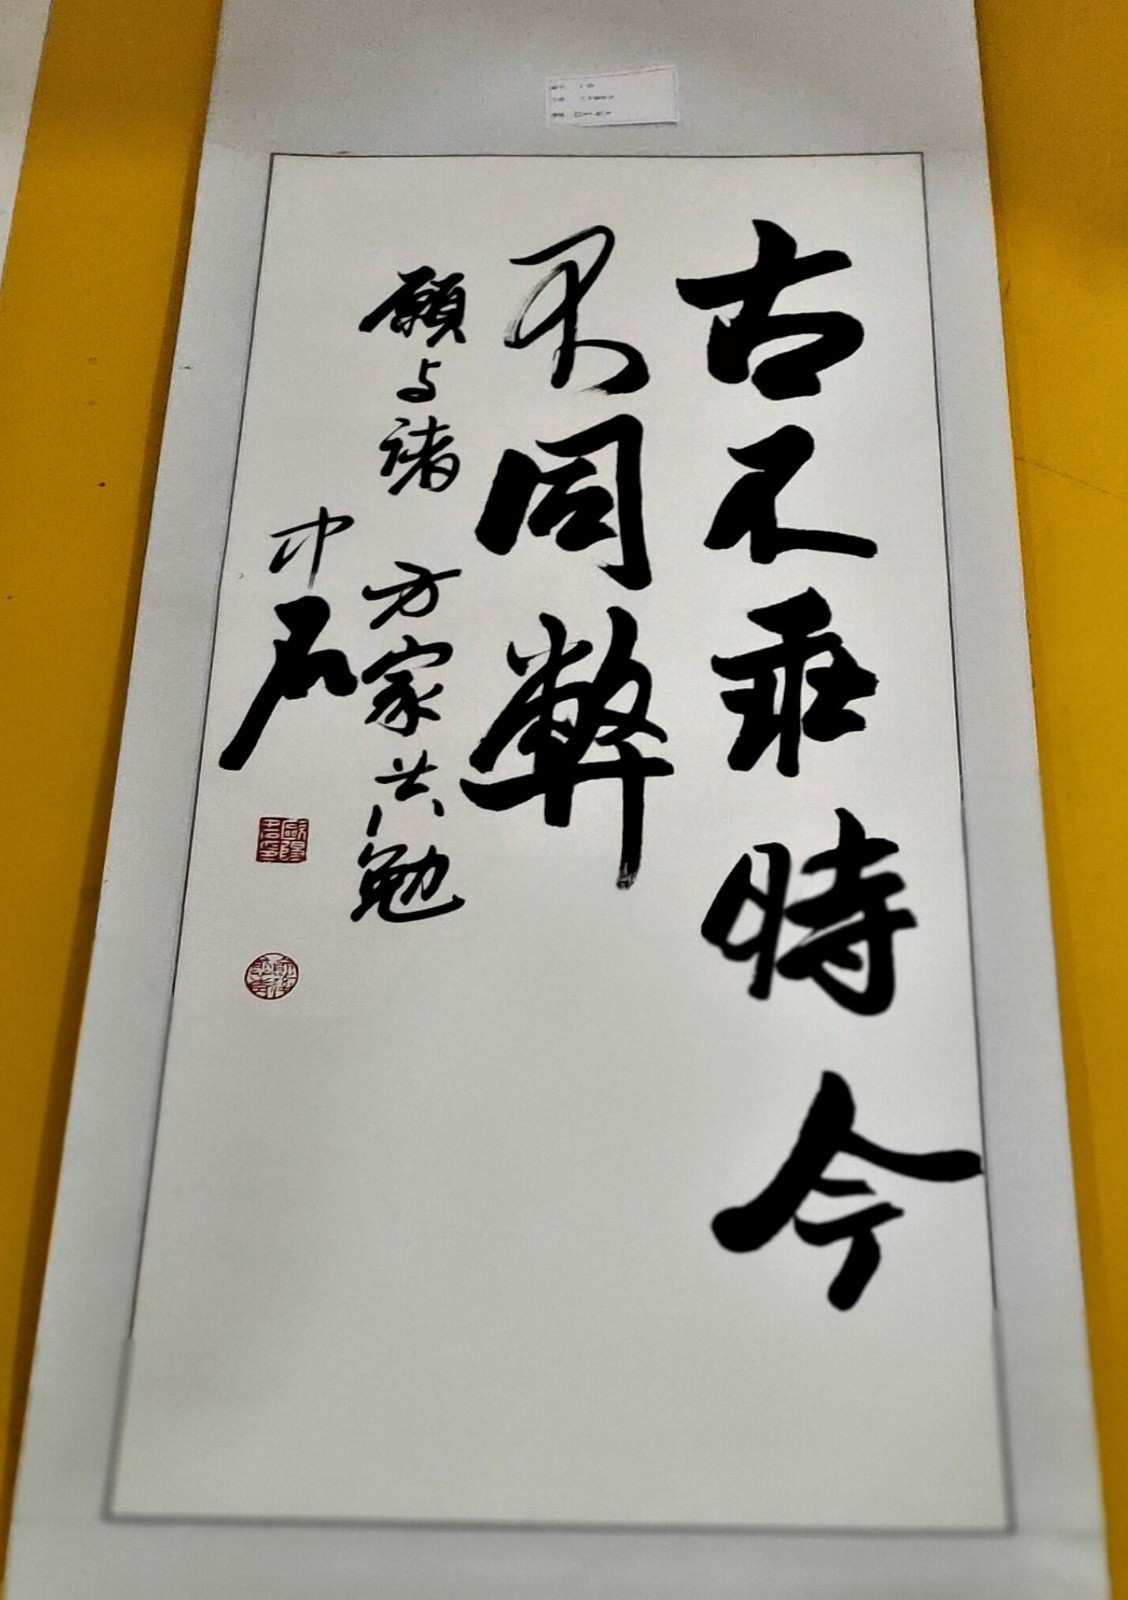 古不乖時今
不同弊
願与諸方家共勉
中石